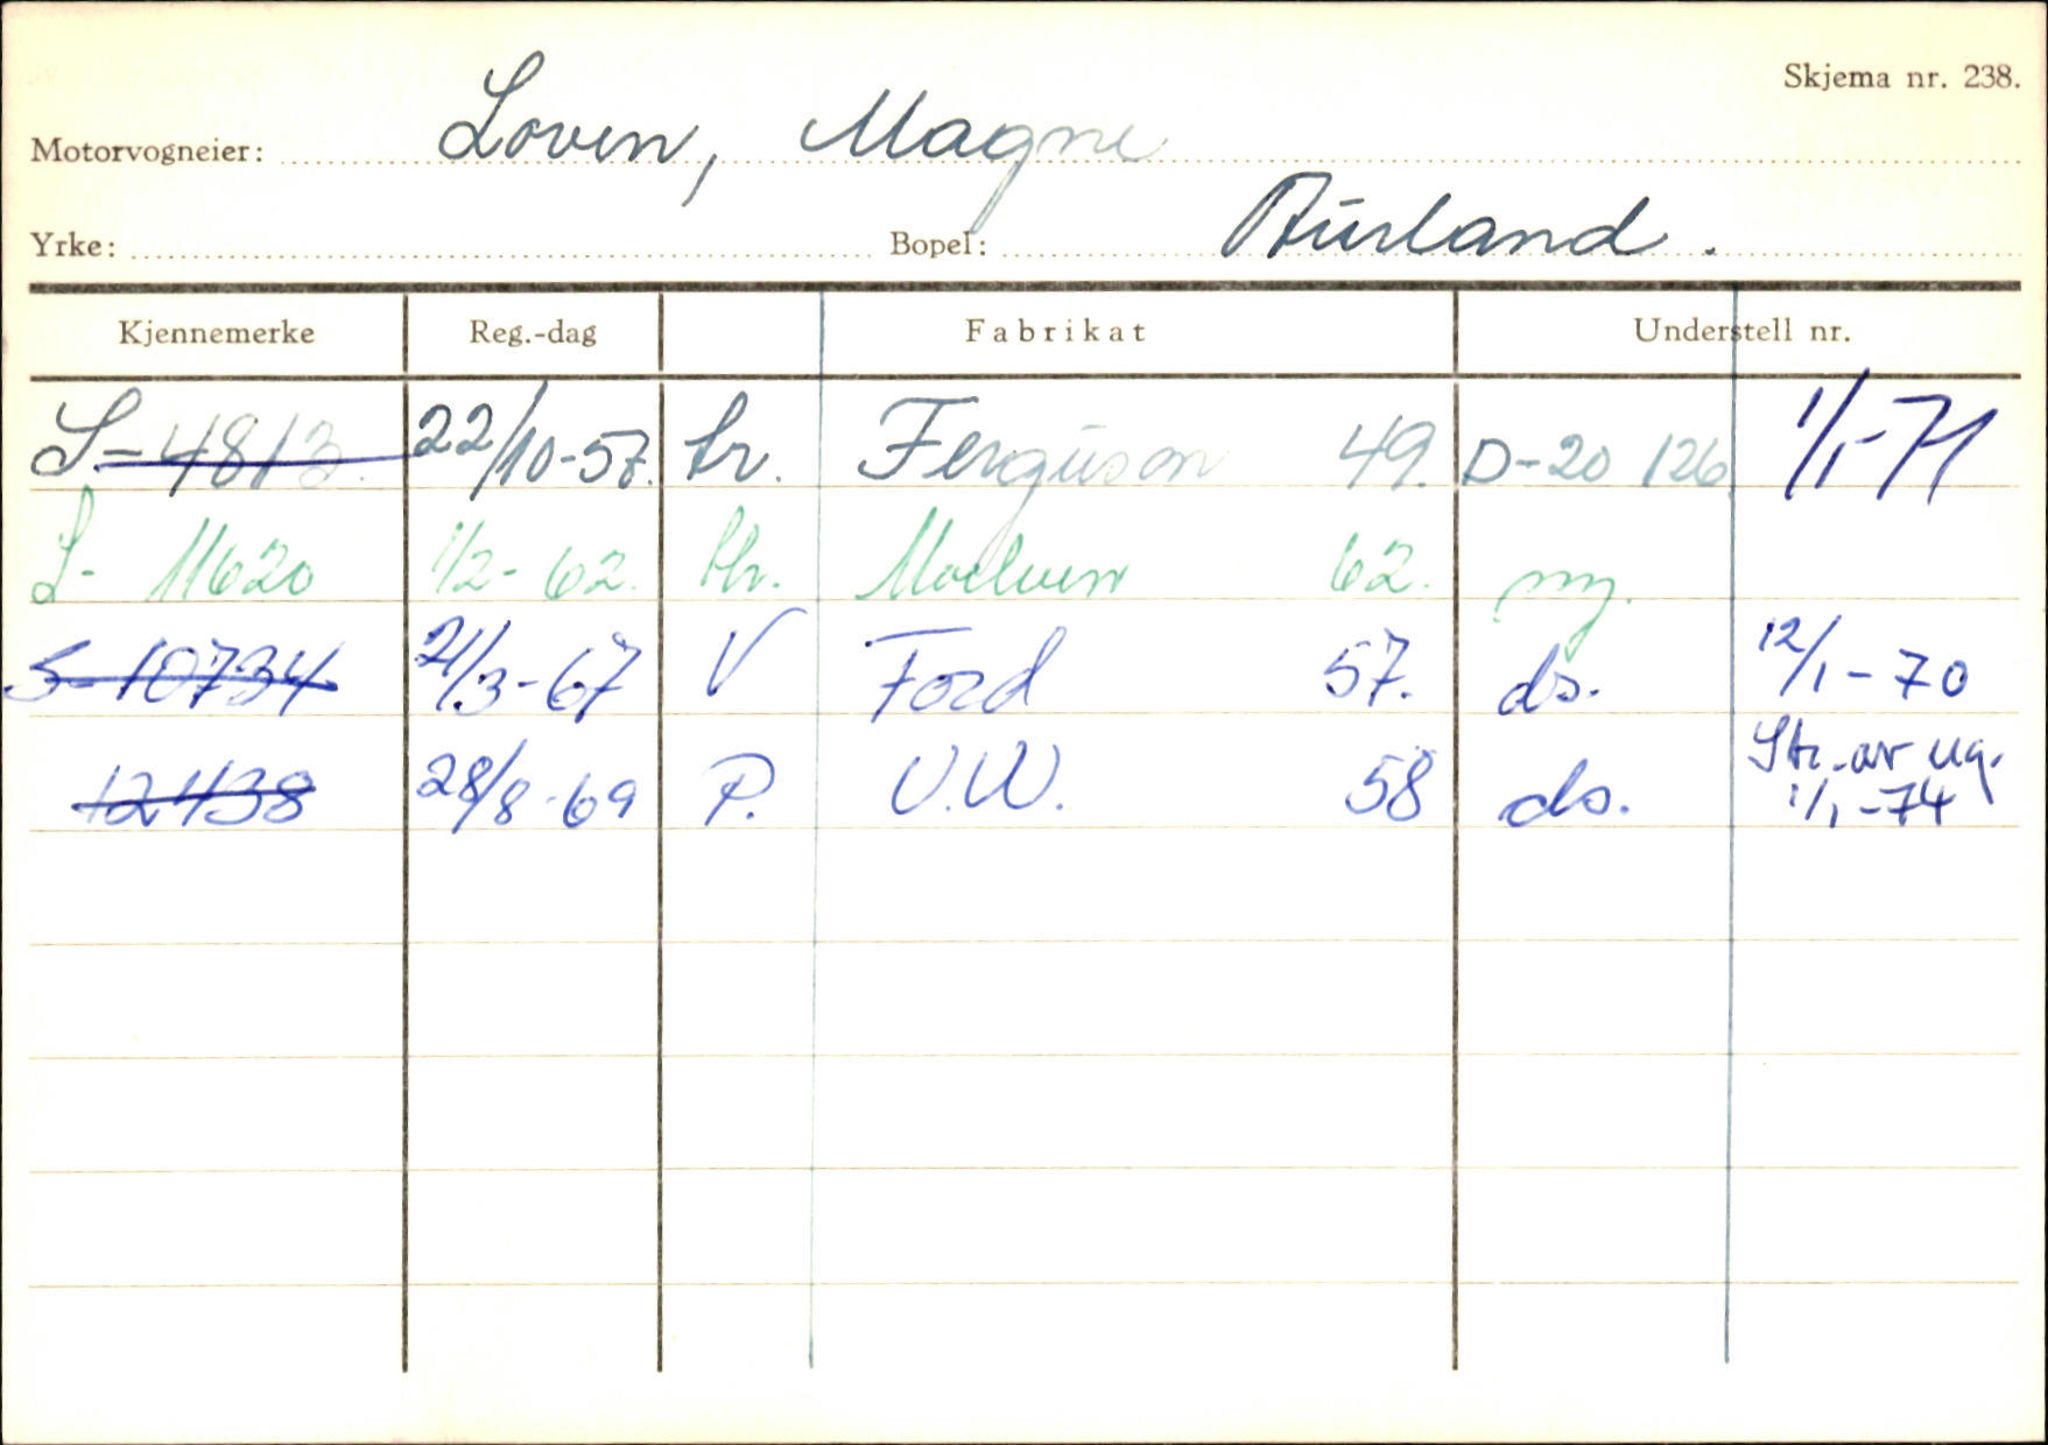 Skjema nr. 238.
Motorvogneier: Loven, Magne
Yrke: Bopel: Aurland.
Kjennemerke Reg.-dag Fabrikat Understell nr.
S-4813. 22/10-57. tr. Ferguson 49. D-20 126 1/1-71
S- 11620 1/2-62. thr. Moelven 62. ny.
S-10734 21/3-67 V Ford 57. ds. 12/1-70
12438 28/8-69 P. V.W. 58 ds. Str. av reg. 1/1-74